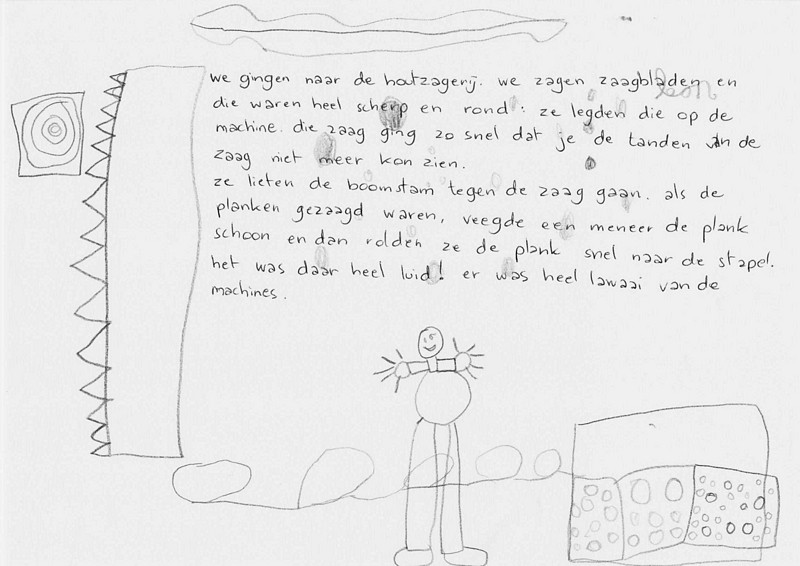 we gingen naar de houtzagerij. we zagen zaagbladen en
die waren heel scherp en rond: ze legden die op de
machine. die zaag ging zo snel dat je de tanden van de
zaag niet meer kon zien.
ze lieten de boomstam tegen de zaag gaan. als de
planken gezaagd waren, veegde een meneer de plank
schoon en dan rolden ze de plank snel naar de stapel.
het was daar heel luid! er was heel lawaai van de
machines.